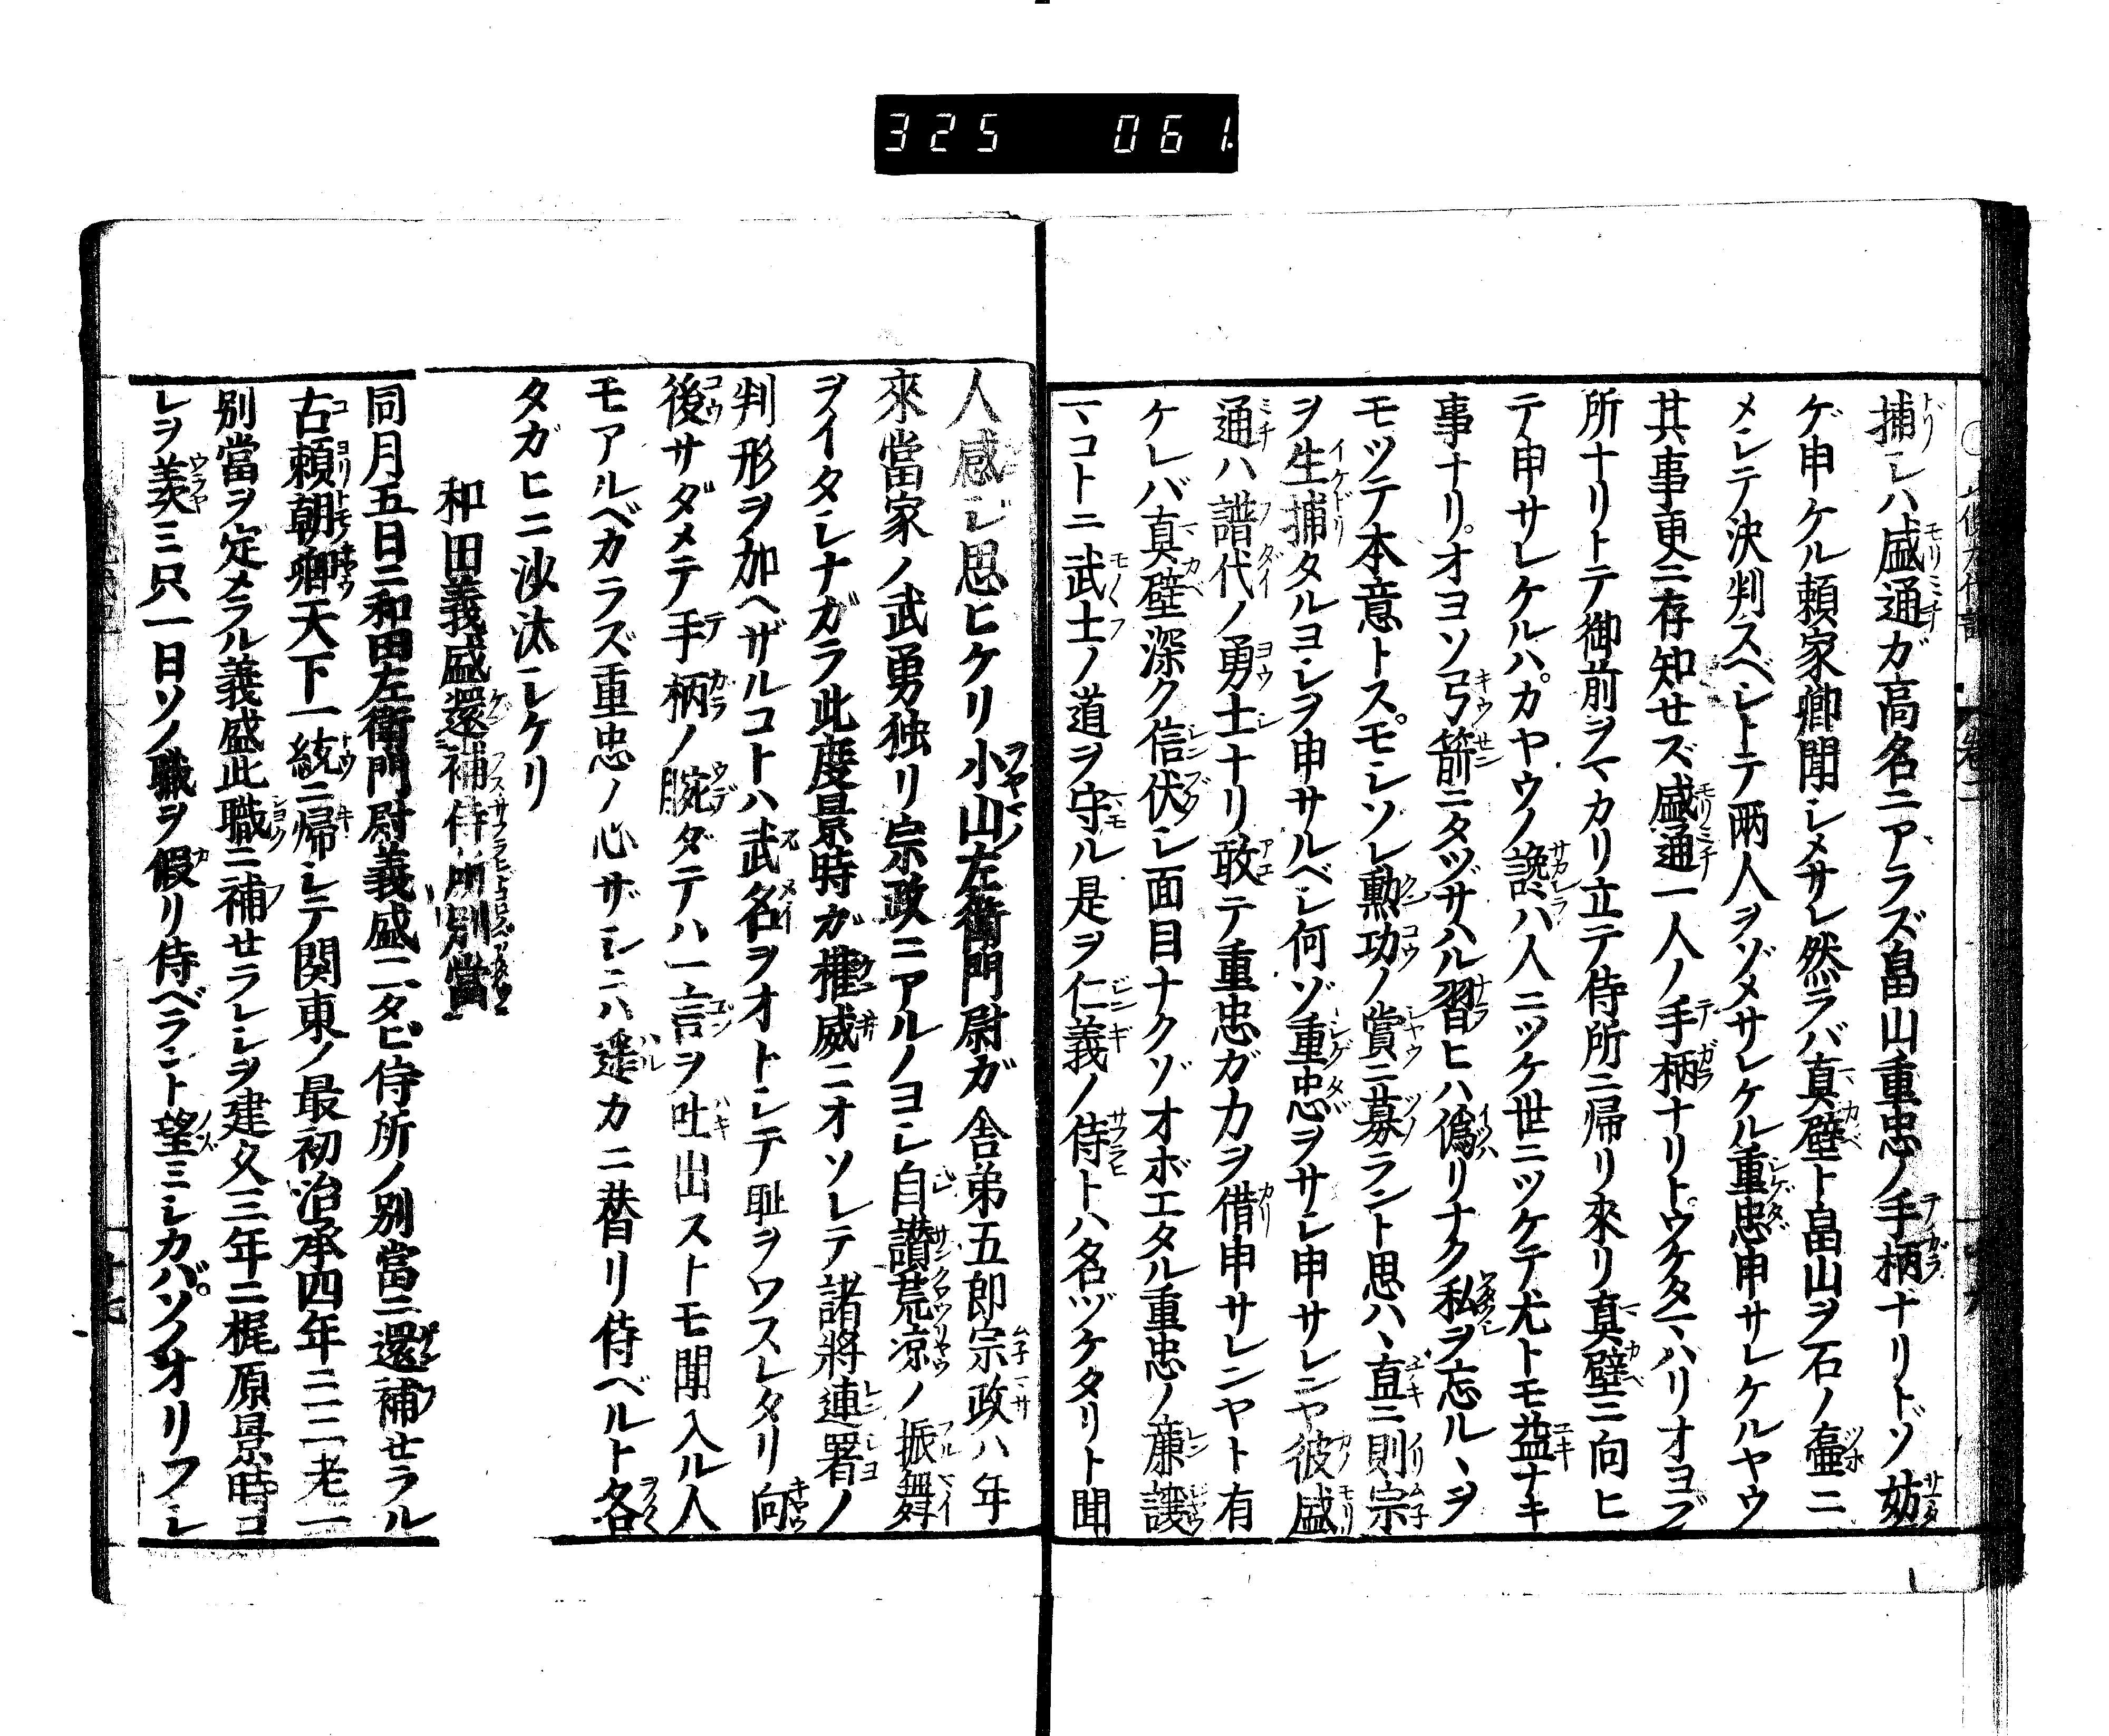 325 061.
捕シハ盛通ガ高名ニアラズ畠山重忠ノ手柄ナリトゾ妨
ゲ申ケル頼家卿聞シメサレ然ラバ真壁ト畠山ヲ石ノ壷ニ
メシテ決判スベシトテ両人ヲゾメサレケル重忠申サレケルヤウ
其事更ニ存知セズ盛通一人ノ手柄ナリトウケタマハリオヨブ
所ナリトテ御前ヲマカリ立テ侍所ニ帰リ來リ真壁ニ向ヒ
テ申サレケルハカヤウノ讒ハ人ニツケ世ニツケテ尤トモ益ナキ
事ナリオヨソ弓箭ニタヅサハル習ヒハ偽リナク私ヲ忘ルヽヲ
モツテ本意トスモシソレ勳功ノ賞ニ募ラント思ハヽ直ニ則宗
ヲ生捕タルヨシヲ申サルベシ何ゾ重忠ヲサシ申サレンヤ彼盛
通ハ譜代ノ勇士ナリ敢テ重忠ガ力ヲ借申サレンヤト有
ケレバ真壁深ク信伏シ面目ナクゾオボエタル重忠ノ廉讓
マコトニ武士ノ道ヲ守ル是ヲ仁義ノ侍トハ名ヅケタリト聞
人感シ思ヒケリ小山左衛門尉ガ舎弟五郎宗政ハ年
來當家ノ武勇独リ宗政ニアルノヨシ自讃荒凉ノ振舞
ヲイタシナガラ此度景時ガ権威ニオソレテ諸將連署ノ
判形ヲ加ヘザルコトハ武名ヲオトシテ耻ヲワスレタリ向
後サダメテ手柄ノ腕ダテハ一言ヲ吐出ストモ聞入ル人
モアルベカラズ重忠ノ心ザシニハ遥カニ替リ侍ベルト各
タガヒニ沙汰シケリ
和田義盛還補侍所別當
同月五日ニ和田左衛門尉義盛二タビ侍所ノ別當ニ還補せラル
古頼朝卿天下一統ニ帰シテ関東ノ最初治承四年ニ二老一
別當ヲ定メラル義盛此職ニ補せラレシヲ建久三年ニ梶原景時コ
レヲ羨ミ只一日ソノ職ヲ假リ侍ベラント望ミシカバソノオリフシ